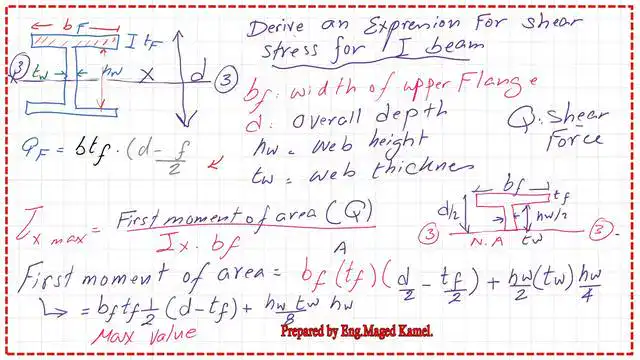 Derive an Expression For shear
stress for I beam
bf
tf
tw
hw
X
d
3
3
bf: width of upper Flange
d: overall depth
hw = web height
tw = web thicknes
Q: shear
Force
QF = btf · (d - f/2
τx max = First moment of area (Q) / Ix · bf
A
bf
tf
d/2
hw/2
3
N.A
tw
3
First moment of area = bf (tf) (d/2 - tf/2) + hw/2 (tw) hw/4
↳ = bf tf 1/2 (d - tf) + hw tw/8 hw
Max value
Prepared by Eng.Maged Kamel.